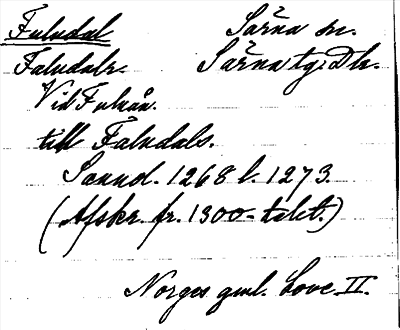 Fuludal Särna sn.
Faludalr. Särna tg: Dlr.
Vid Fuluån.
till Faludals.
Sannol. 1268 l. 1273.
(Afskr. fr. 1300-talet.)
Norges gml. Love II.